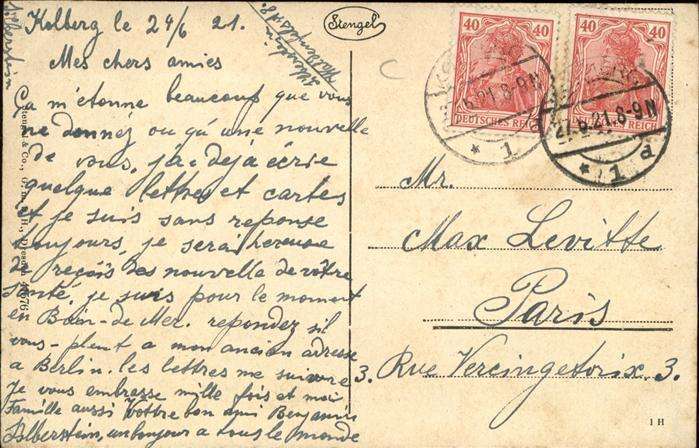 Kolberg le 24/6 21.
Mes chers amies
Ça m'etonne beaucoup que vous
ne donnez ou qu'une nouvelle
de vous, j'ai deja écrie
quelque lettres et cartes
et je suis sans reponse
toujours, je serai hereuse
de reçois des nouvella de votre
Santé, je suis pour le moment
en Bain-de Mer. repondez sil
vous-plent a mon ancien adresse
a Berlin. les lettres me suivere
Je vous embrasse mille fois et moi
Famille aussi Vottre bon ami Benjamin
Silberstein, un bonjour a tous le monde
Silberstein
Stengel & Co., G. m. b. H., Dresden
Stengel
40 40
DEUTSCHES REICH
40 40
DEUTSCHES REICH
27.6.21.8-9N
* 1 d
Mr.
Max Levitte
Paris
3. Rue Vercingetorix 3.
1 H